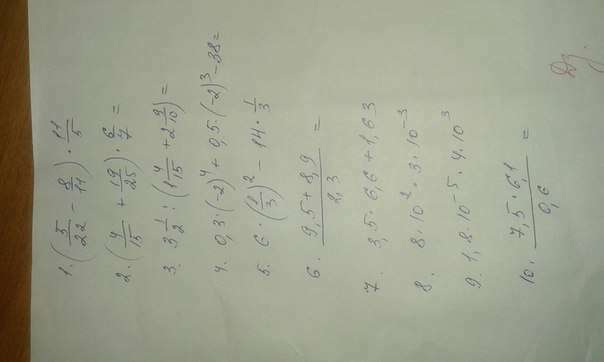 1. (5/22 - 8/11) · 11/5
2. (4/15 + 19/25) · 6/7 =
3. 3 1/2 : (1 4/15 + 2 9/10) =
4. 0,3·(-2)^4 + 0,5·(-2)^3 - 38 =
5. 6·(1/3)^2 - 14·1/3
6. (9,5 + 8,9)/2,3 =
7. 3,5·6,6 + 1,63
8. 8·10^2 · 3·10^-3
9. 1,8·10^-5 · 4·10^3
10. (7,5·6,1)/0,6 =